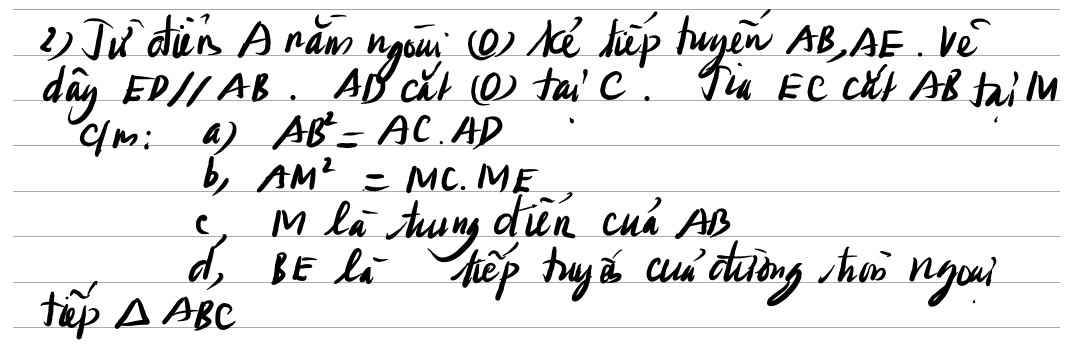 2) Từ điểm A nằm ngoài (O) kẻ tiếp tuyến AB, AE. Vẽ
dây ED // AB. AD cắt (O) tại C. Tia EC cắt AB tại M
C/m: a) AB² = AC.AD
b, AM² = MC.ME
c, M là trung điểm của AB
d, BE là tiếp tuyến của đường tròn ngoại
tiếp Δ ABC